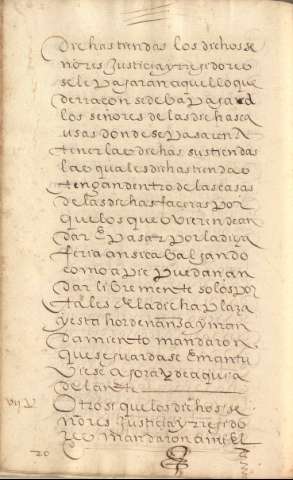 dichas tiendas los dichos se
ñores Justicia y rregidores
se le pagaran aquello que
de rrazon se deba pagar a
los señores de las dichas ca
usas donde se pasaren A
tener las dichas sus tiendas
las quales dichas tiendas
tengan dentro de las casas
de las dichas faceras por
que los que obieren de an
dar E pasar por la dicha
feria ansi cabalgando
como a pie puedan an
dar libremente so los por
tales de la dicha plaza
y esta hordenanza y man
damiento mandaron
que se guardase E mantu
biese agora y de aqui a
delante
Otrosi que los dichos se
ñores Justicia y rregido
res mandaron a mi el